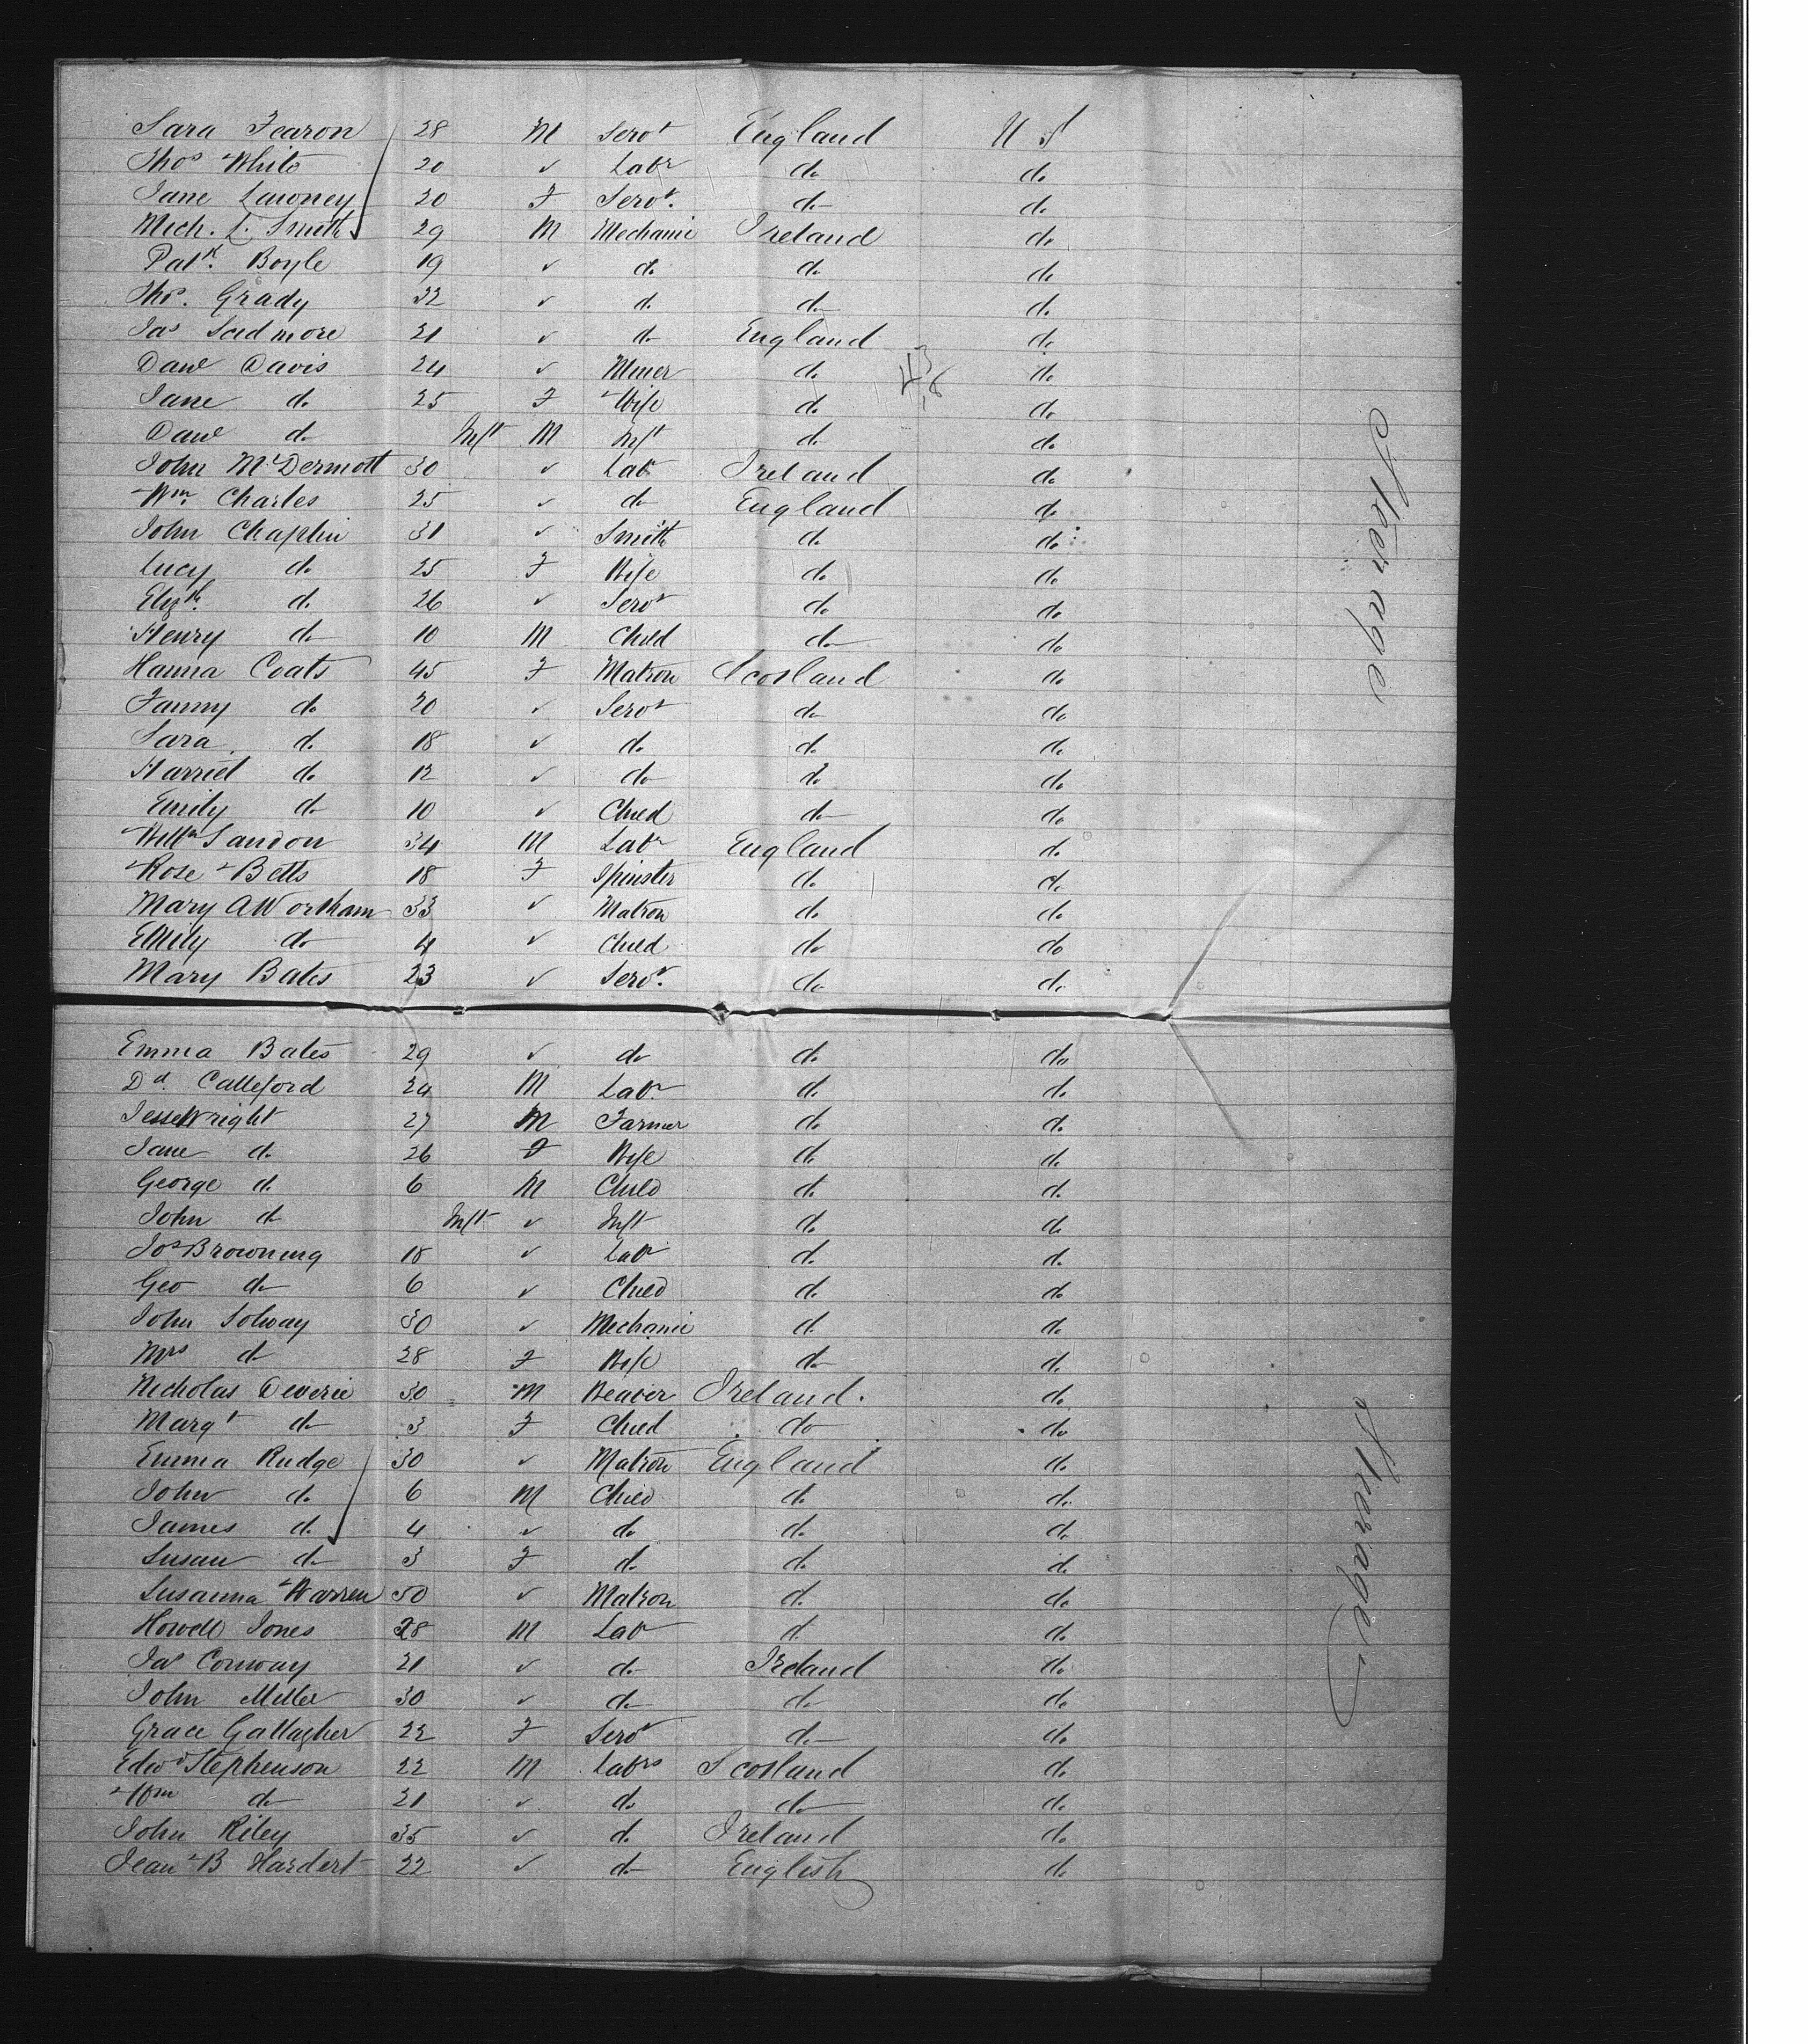 Sara Fearon 28 M Servt England U S
Thos White 20 ✓ Labr do do
Jane Lawoney 20 F Servt. do do
Mich. L. Smith 29 M Mechanic Ireland do
Patk. Boyle 19 ✓ do do do
Tho. Grady 32 ✓ do do do
Jas Scudmore 21 ✓ do England do
Danl Davis 24 ✓ Miner do do
Jane do 25 F Wife do do
Danl do Inft M Inft do do
John McDermott 30 ✓ Labr Ireland do
Wm Charles 25 ✓ do England do
John Chaplin 31 ✓ Smith do do
Lucy do 25 F Wife do do
Elizth. do 26 ✓ Servt do do
Henry do 10 M Child do do
Hanna Coats 45 F Matron Scotland do
Fanny do 20 ✓ Servt do do
Sara do 18 ✓ do do do
Harriet do 12 ✓ do do do
Emily do 10 ✓ Child do do
Willm Landon 34 M Labr England do
Rose Betts 18 F Spinster do do
Mary A Wortham 33 ✓ Matron do do
Emily do 4 ✓ Child do do
Mary Bates 23 ✓ Servt. do do
Emma Bates 29 ✓ do do do
Dd. Calleford 24 M Labr do do
Jesse Wright 27 M Farmer do do
Jane do 26 F Wife do do
George do 6 M Child do do
John do Inft ✓ Inft do do
Jos Browning 18 ✓ Labr do do
Geo do 6 ✓ Child do do
John Solway 30 ✓ Mechanic do do
Mrs do 28 F Wife do do
Nicholas Deverie 30 M Weaver Ireland. do
Margt do 3 F Child do do
Emma Rudge 30 ✓ Matron England do
John do 6 M Child do do
James do 4 ✓ do do do
Susan do 3 F do do do
Susanna Warren 50 ✓ Matron do do
Howell Jones 28 M Labr do do
Jas Conway 21 ✓ do Ireland do
John Miller 30 ✓ do do do
Grace Gallagher 22 F Servt do do
Edwd Stephenson 22 M Labrs Scotland do
Wm do 21 ✓ do do do
John Riley 35 ✓ do Ireland do
Jean B Hardert 22 ✓ do English do
Steerage
Steerage